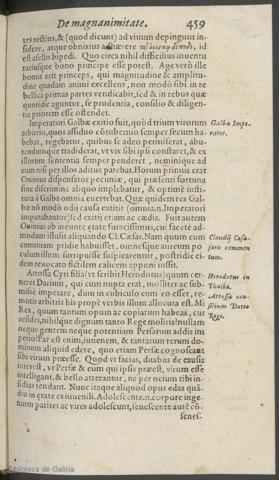 De magnanimitate. 459
tes restius, & (quod dicunt) ad vivum depingunt in-
sidere, atque obnixius adhærere id
est asello bipedi. Quo circa nihil difficilius inventu
rariusque bono principe esse potest. Age verò ille
bonus erit princeps, qui magnitudine & amplitu-
dine quadam animi excellens, non modò sibi in re
bellica primas partes vendicabit, sed & in rebus quæ
quotidie aguntur, se prudentia, consilio & diligen-
tia priorem esse ostendet.
Imperatori Galbæ exitio fuit, quòd trium virorum
Galba Impe-
rator.
arbitrio, quos assiduo cõtubernio semper secum ha-
bebat, regebatur, quibus se adeo permiserat, abu-
tendumque tradiderat, vt vix sibi ipsi constaret, & ex
illorum sententia semper penderet, neminique ad
eum nisi per illos aditus patebat. Horum primus erat
Ovinius dispensator pecuniæ, qui præsenti fortuna
sine discrimine aliquo implebatur, & optimè insti-
tuta à Galba omnia evertebat. Quæ quidem res Gal-
bæ nõ modò odij causa extitit (omnia n. Imperatori
imputabantur) sed exitij etiam ac cædis. Fuit autem
Ovinius ab ineunte ætate furacissimus, cui factè ad-
modum illusit aliquando Cl. Cæsar. Nam quum cum
Claudij Cæsa-
saris commen
tum.
conuiuam pridie habuisset, omnesque aureum po-
culum illum surripuisse suspicarentur, postridie ei-
dem reuocato fictilem calicem apponi iussit.
Attossa Cyri filia (vt scribit Herodotus) quum cer-
Herodotus in
Thalia.
neret Darium, qui cum nupta erat, molliter ac sub-
Attossæ con-
silium Dario
Regi.
misse imperare, dum in cubiculo cum eo esset, re-
motis arbitris his propè verbis illum allocuta est. Mi
Rex, quum tantum opum ac copiarum habeas, cur
resides, nihilque dignum tanto Rege moliris? nullam
neque gentem neque potentiam Persarum addis im
perio? Par est enim, iuuenem, & tantarum rerum do-
minum aliquid edere, quo etiam Persæ cognoscant
sibi virum præesse. Quod vt facias, duabus de causis
interest, vt Persæ & eum qui ipsis præest, virum esse
intelligant, & bello atterantur, ne per ocium tibi in-
sidias tendant. Nunc itaque aliquod opus edas quã-
diu in ætate es iuuenili. Adolescente n. corpore inge-
nium pariter ac vires adolescunt, senescente autẽ cõ-
senes-
Biblioteca de Galicia